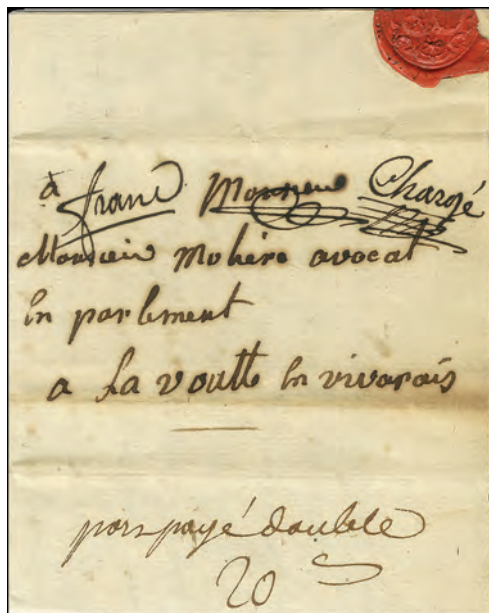 à franc Monsieur Chargé
Monsieur Molière avocat
En parlement
a La voulte En vivarais
port payé double
20 s